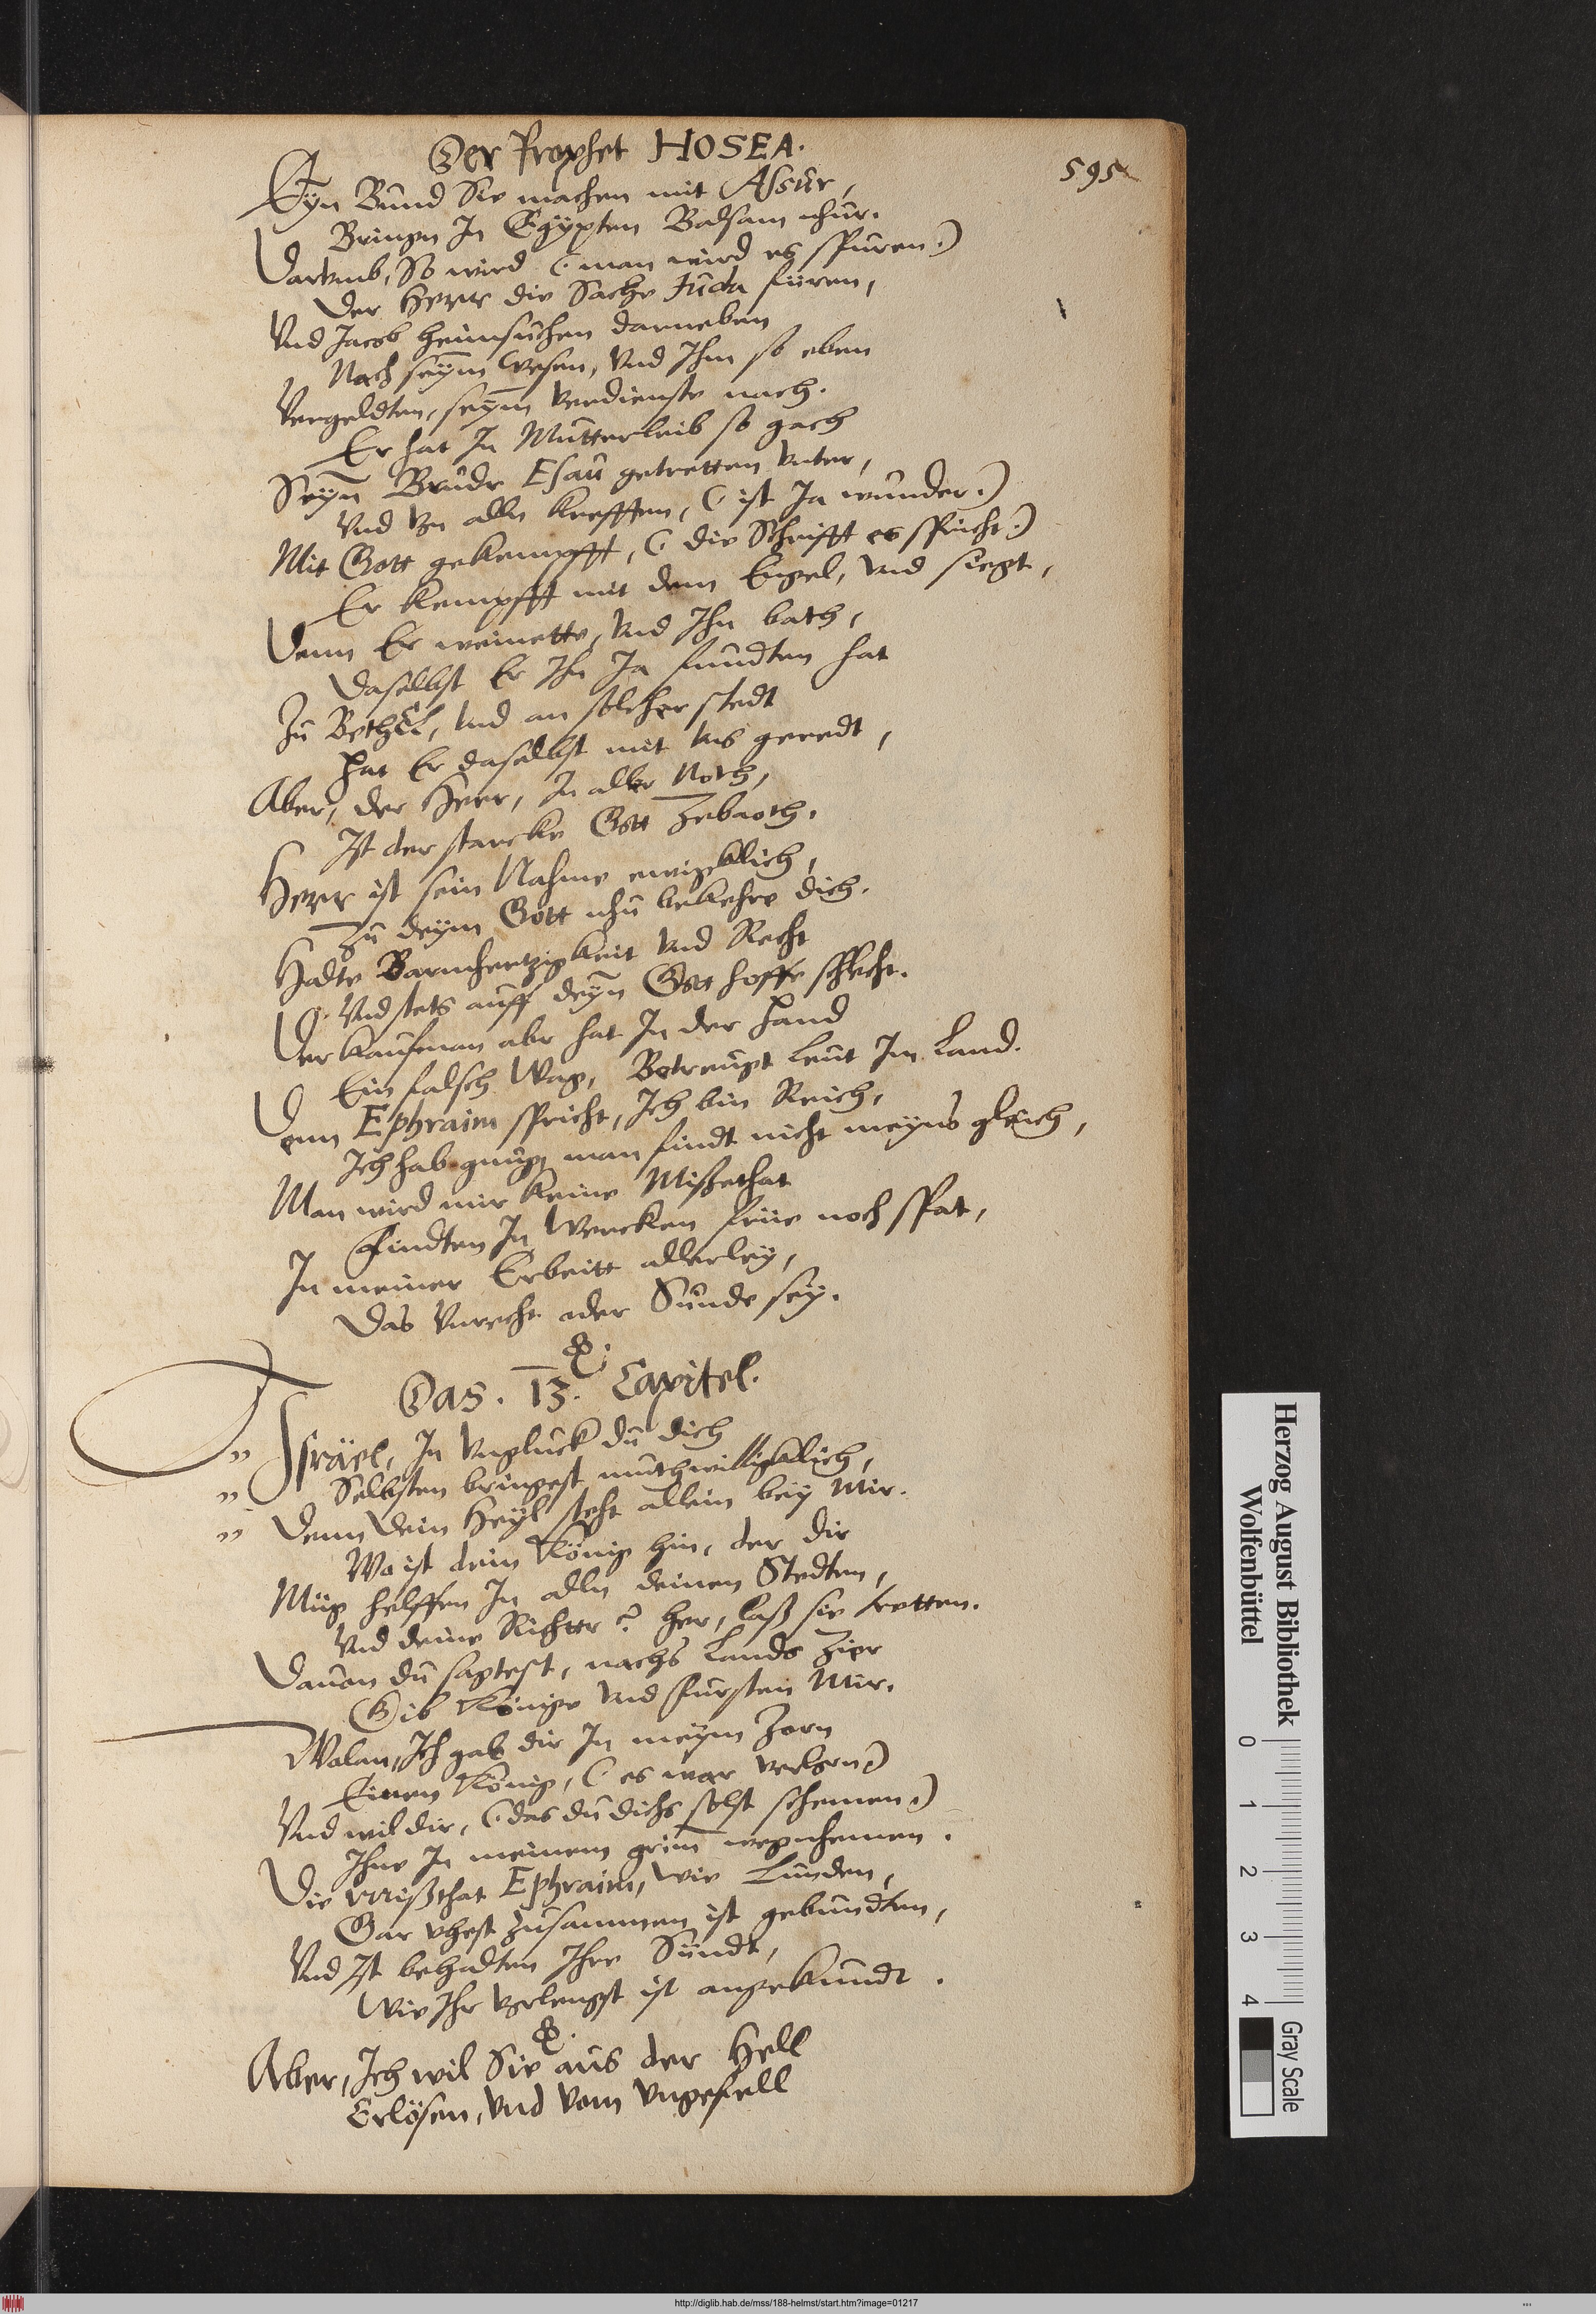 Der Prophet HOSEA.
595
Eyn Bund Sie machen mit Assur,
Bringn In Egypten Balsam nhur.
Darumb, So wird (: man wird es spuren:)
Der Herr die Sache Juda füren,
Vnd Jacob heimsuchen darneben
Nach seym Wesen, Vnd Ihm so eben
Vergeldten, seym Verdienste nach.
Er hat In Mutterleib so gach
Seyn Brudr Esau getretten Vnter,
Vnd Von alln krefften, (: ist Ja wunder:)
Mit Gott gekempfft, (: die Schrifft es spricht:)
Er kempfft mit dem Engel, Vnd siegt,
Denn Er weinette, Vnd Ihn bath,
Daselbst Er Ihn Ja fundten hat
Zu Bethel, Vnd an solcher stedt
Hat Er daselbst mit Vns geredt,
Aber, der Herr, In aller Noth,
Ist der starcke Gott Zebaoth.
Herr ist sein Nahme ewigklich,
Zu deym Gott nhu bekehre dich.
Halte Barmhertzigkeit Vnd Recht
Vnd stets auff deyn Gott hoffe schlecht.
Der Kaufman abr hat In der Hand
Ein falsch Wag, Betreugt Leut Im Land.
Denn Ephraim spricht, Ich bin Reich,
Ich hab gnug, man findt nicht meyns gleich,
Man wird mir keine Mißethat
Findten In Wercken früe noch spat,
In meiner Erbeitt allerley,
Das Vnrecht oder Sunde sey.
Das. 13. Capitel.
" Israel, In Vngluck du dich
" Selbsten bringest muthwilligklich,
" Denn Dein Heyl steht allein bey Mir.
Wo ist dein König hin, der dir
Müg helffen In alln deinen Stedten,
Vnd deine Richter? Her, laß sie retten.
Dauon du sagtest, nachs Lands Zier
Gib Könige Vnd Fursten Mir.
Wolan, Ich gab dir In meym Zorn
Einen König, (: es war verlorn:)
Vnd wil dir, (: das du dichs solst schemen:)
Ihne In meinem grim wegnhemen.
Die Mißthat Ephraim, wie Lunden,
Gar vhest zusammen ist gebundten,
Vnd Ist behalten Ihre Sündt,
Wie Ihr Vorlengst ist angekundt.
Aber, Ich wil Sie aus der Hell
Erlösen, Vnd Vom Vngefell
Herzog August Bibliothek
Wolfenbüttel
0 1 2 3 4
Gray Scale
http://diglib.hab.de/mss/188-helmst/start.htm?image=01217